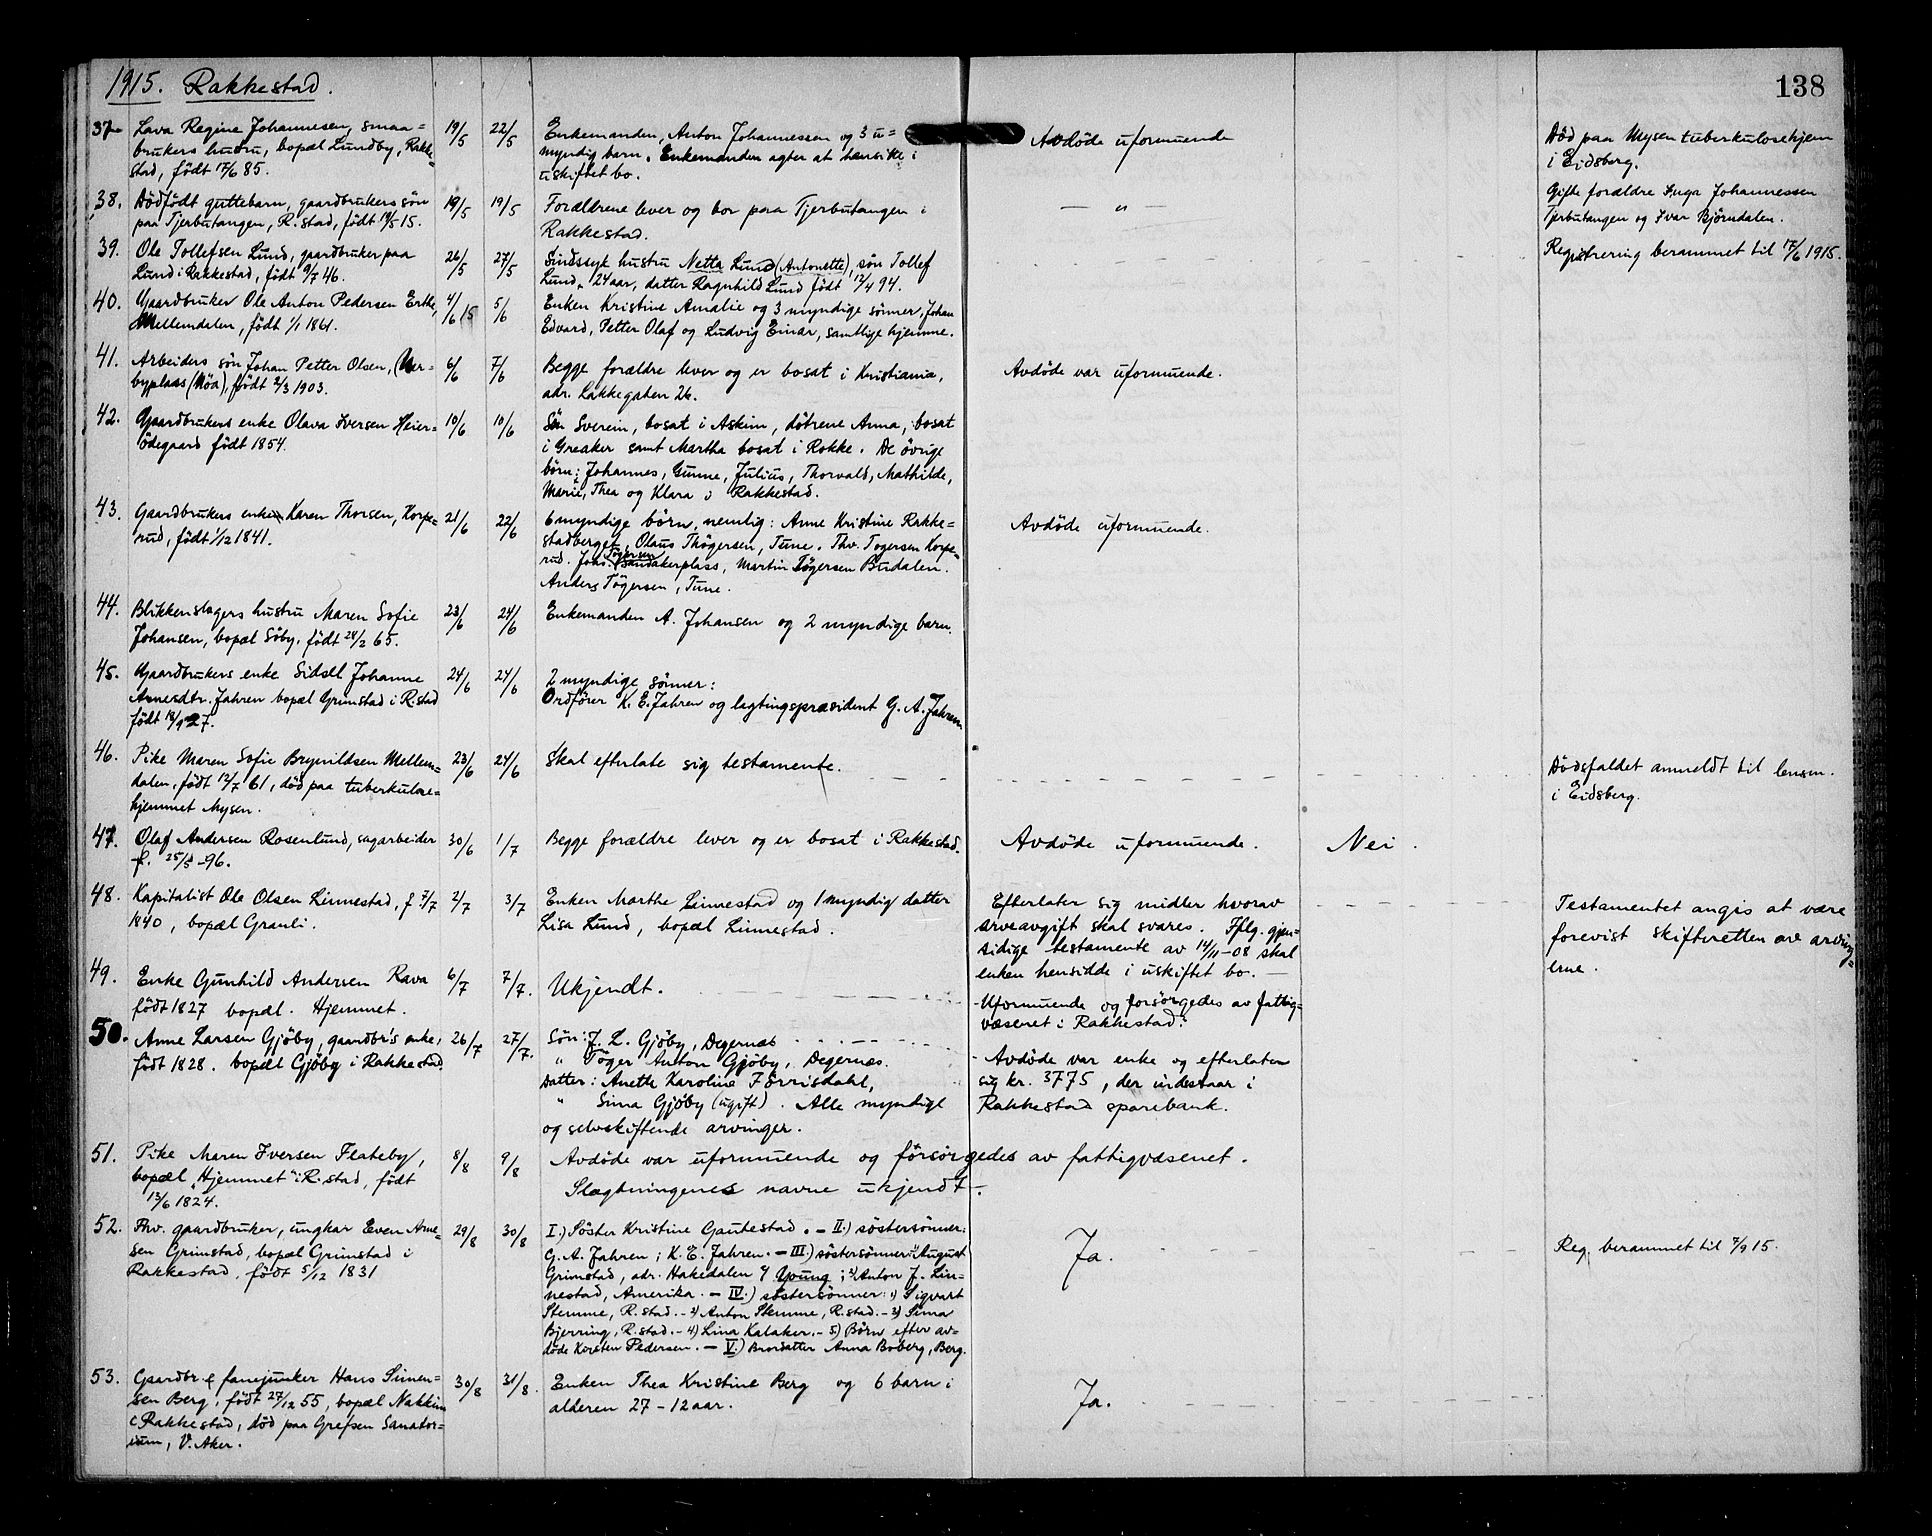 1915. Rakkestad.
138
37 Lava Regine Johannesen, smaa= 19/5 22/5 Enkemanden, Anton Johannessen og 3 u= Avdøde uformuende Død paa Mysen tuberkulosehjem
brukers hustru, bopæl Lundby, Rakke= myndig barn. Enkemanden agter at hensitte i i Eidsberg.
stad, født 17/6 85. uskiftet bo.
38. Dødfødt guttebarn, gaardbrukers søn 19/5 19/5 Forældrene lever og bor paa Tjerbutangen i — " — Gifte forældre Inga Johannessen
paa Tjerbutangen, R.stad, født 19/5 15. Rakkestad. Tjerbutangen og Ivar Bjørndalen.
39. Ole Tollefsen Lund, gaardbruker paa 26/5 27/5 Sindssyk hustru Netta Lund (Antonette), søn Tollef Registrering berammet til 17/6 1915.
Lund i Rakkestad, født 9/7 46. Lund, 24 aar, datter Ragnhild Lund født 12/4 94.
40. Gaardbruker Ole Anton Pedersen Erthe, 4/6 15 5/6 Enken Kristine Amalie og 3 myndige sønner, Johan
Mellemdalen, født 1/1 1861. Edvard, Petter Olaf og Ludvig Einar, samtlige hjemme.
41. Arbeiders søn Johan Petter Olsen, 6/6 7/6 Begge forældre lever og er bosat i Kristiania, Avdøde var uformuende.
byplass (Möa), født 2/3 1903. adr. Lakkegaten 26.
42. Gaardbrukers enke Olava Iversen Heier= 10/6 10/6 Søn Sverein, bosat i Askim, døtrene Anna, bosat
ødegaard født 1854. i Greaker samt Martha bosat i Rokke. De øvrige
børn: Johannes, Gunne, Julius, Thorvald, Mathilde,
Marie, Thea og Klara i Rakkestad.
43. Gaardbrukers enke Karen Thorsen, Korpe= 21/6 22/6 6 myndige børn, nemlig: Anne Kristine Rakke= Avdøde uformuende.
rud, født 1/12 1841. stadberget, Olaus Thøgersen, Tune. Thv. Togersen Korpe=
rud. Johs. Tøgersen Sandakerplass, Martin Tøgersen Budalen.
Anders Tøgersen, Tune.
44. Blikkenslagers hustru Maren Sofie 23/6 24/6 Enkemanden A. Johansen og 2 myndige barn.
Johansen, bopæl Søby, født 28/2 65.
45. Gaardbrukers enke Sidsel Johanne 24/6 24/6 2 myndige sønner:
Arnesdtr. Jahren bopæl Grimstad i R.stad Ordfører K. E. Jahren og lagtingspræsident G. A. Jahren
født 18/9 27.
46. Pike Maren Sofie Brynildsen Mellem= 23/6 24/6 Skal efterlate sig testamente. Dødsfaldet anmeldt til lensm.
dalen, født 12/7 61, død paa tuberkulose= i Eidsberg.
hjemmet Mysen.
47. Olaf Andersen Rosenlund, sagarbeider 30/6 1/7 Begge forældre lever og er bosat i Rakkestad. Avdøde uformuende. Nei.
f. 25/5 -96.
48. Kapitalist Ole Olsen Linnestad, f 7/7 2/7 3/7 Enken Marthe Linnestad og 1 myndig datter Efterlater sig midler hvorav Testamentet angis at være
1840, bopæl Granli. Lisa Lund, bopæl Linnestad. arveavgift skal svares. Iflg. gjen= forevist skifteretten av arving=
sidige testamente av 14/11-08 skal erne.
enken hensidde i uskiftet bo.
49. Enke Gunhild Andersen Rava 6/7 7/7. Ukjendt. Uformuende og forsørgedes av fattig=
født 1827 bopæl. Hjemmet. væsenet i Rakkestad.
50. Anne Larsen Gjøby, gaardbr's enke, 26/7 27/7. Søn: J. L. Gjøby, Degernæs Avdøde var enke og efterlater
født 1828. bopæl Gjøby i Rakkestad. " Tøger Anton Gjøby, Degernæs. sig kr. 3775, der indestaar i
Datter: Anette Karoline Førrisdahl, Rakkestad sparebank.
" Sina Gjøby (ugift). Alle myndige
og selvskiftende arvinger.
51. Pike Maren Iversen Flateby, 8/8 9/8 Avdøde var uformuende og forsørgedes av fattigvæsenet.
bopæl „Hjemmet" i R.stad, født Slægtningenes navne ukjendt.
13/6 1824.
52. Fhv. gaardbruker, ungkar Even Arne= 29/8 30/8 I.) Søster Kristine Gautestad. — II.) søstersønner: Ja. Reg. berammet til 7/9 15.
sen Grimstad, bopæl Grimstad i G. A. Jahren; K. E. Jahren. — III.) søstersønner: 1) August
Rakkestad, født 5/12 1831 Grimstad, adr. Hakedalen 4 Young; 2) Anton J. Lin=
nestad, Amerika. — IV.) søstersønner: 1) Sigvart
Stemme, R.stad. - 2) Anton Stemme, R.stad. - 3) Sina
Bjerring, R.stad. - 4) Lina Kalaker. - 5) Børn efter av=
døde Karsten Pedersen. — V.) Brordatter Anna Boberg, Berg.
53. Gaardbr. & fanejunker Hans Simen= 30/8 31/8. Enken Thea Kristine Berg og 6 barn i Ja.
sen Berg, født 27/12 55, bopæl Nakkim alderen 27 - 12 aar.
i Rakkestad, død paa Grefsen Sanator=
ium, V. Aker.